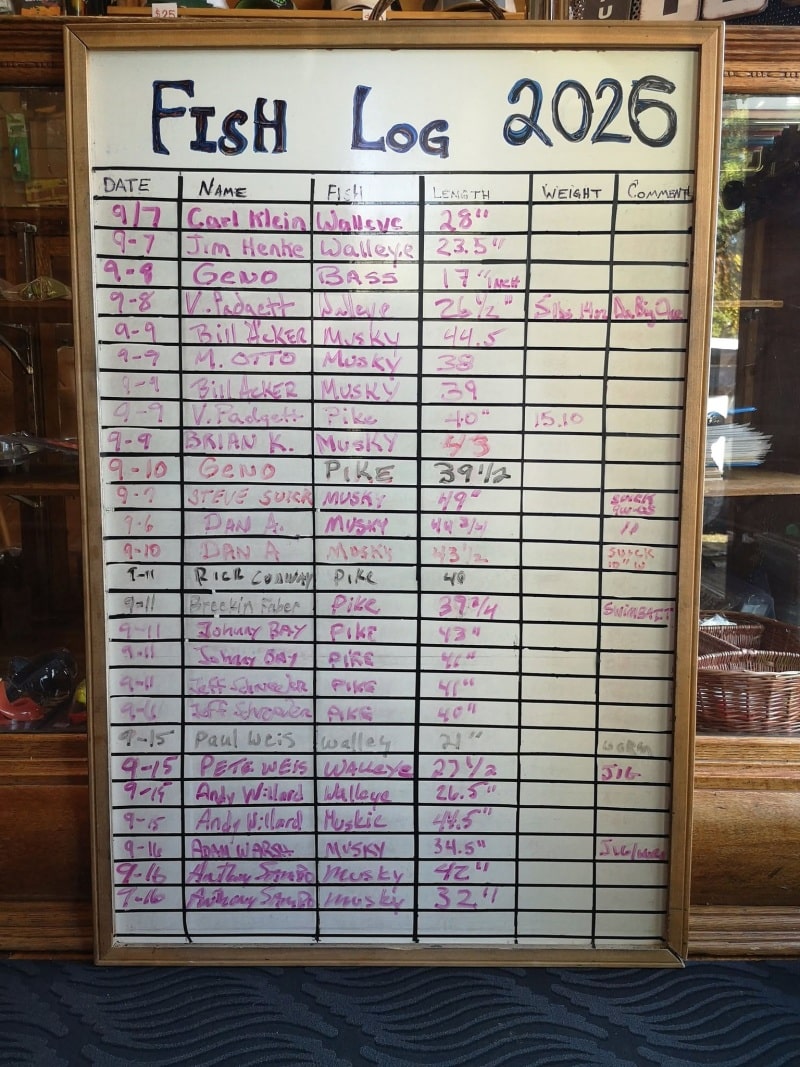 $25
FISH LOG 2026
DATE NAME FISH LENGTH WEIGHT COMMENT
9/7 Carl Klein Walleye 28"
9-7 Jim Henke Walleye 23.5"
9-8 GENO BASS 17" INCH
9-8 V. Padgett Walleye 26 1/2" 5 lbs 14oz Da Big One
9-9 Bill ACKER MUSKY 44.5
9-9 M. OTTO MUSKY 38
9-9 Bill ACKER MUSKY 39
9-9 V. Padgett Pike 40" 15.10
9-9 BRIAN K. MUSKY 43
9-10 GENO PIKE 39 1/2
9-7 STEVE SUICK MUSKY 49" SUICK
9-6 DAN A. MUSKY 44 3/4 "
9-10 DAN A MUSKY 43 1/2 SUICK 10" W
9-11 RICK CONWAY PIKE 40
9-11 Breckin Faber PIKE 39 3/4 SWIMBAIT
9-11 Johnny BAY PIKE 43"
9-11 Johnny BAY PIKE 41"
9-11 Jeff Schroeder PIKE 41"
9-11 Jeff Schroeder PIKE 40"
9-15 Paul Weis Walley 21" WORM
9-15 PETE WEIS WALLEYE 27 1/2 JIG
9-15 Andy Willard Walleye 26.5"
9-15 Andy Willard Muskie 44.5"
9-16 ADAM MUSKY 34.5" JIG/
9-16 Anthony musky 42"
9-16 Anthony musky 32"